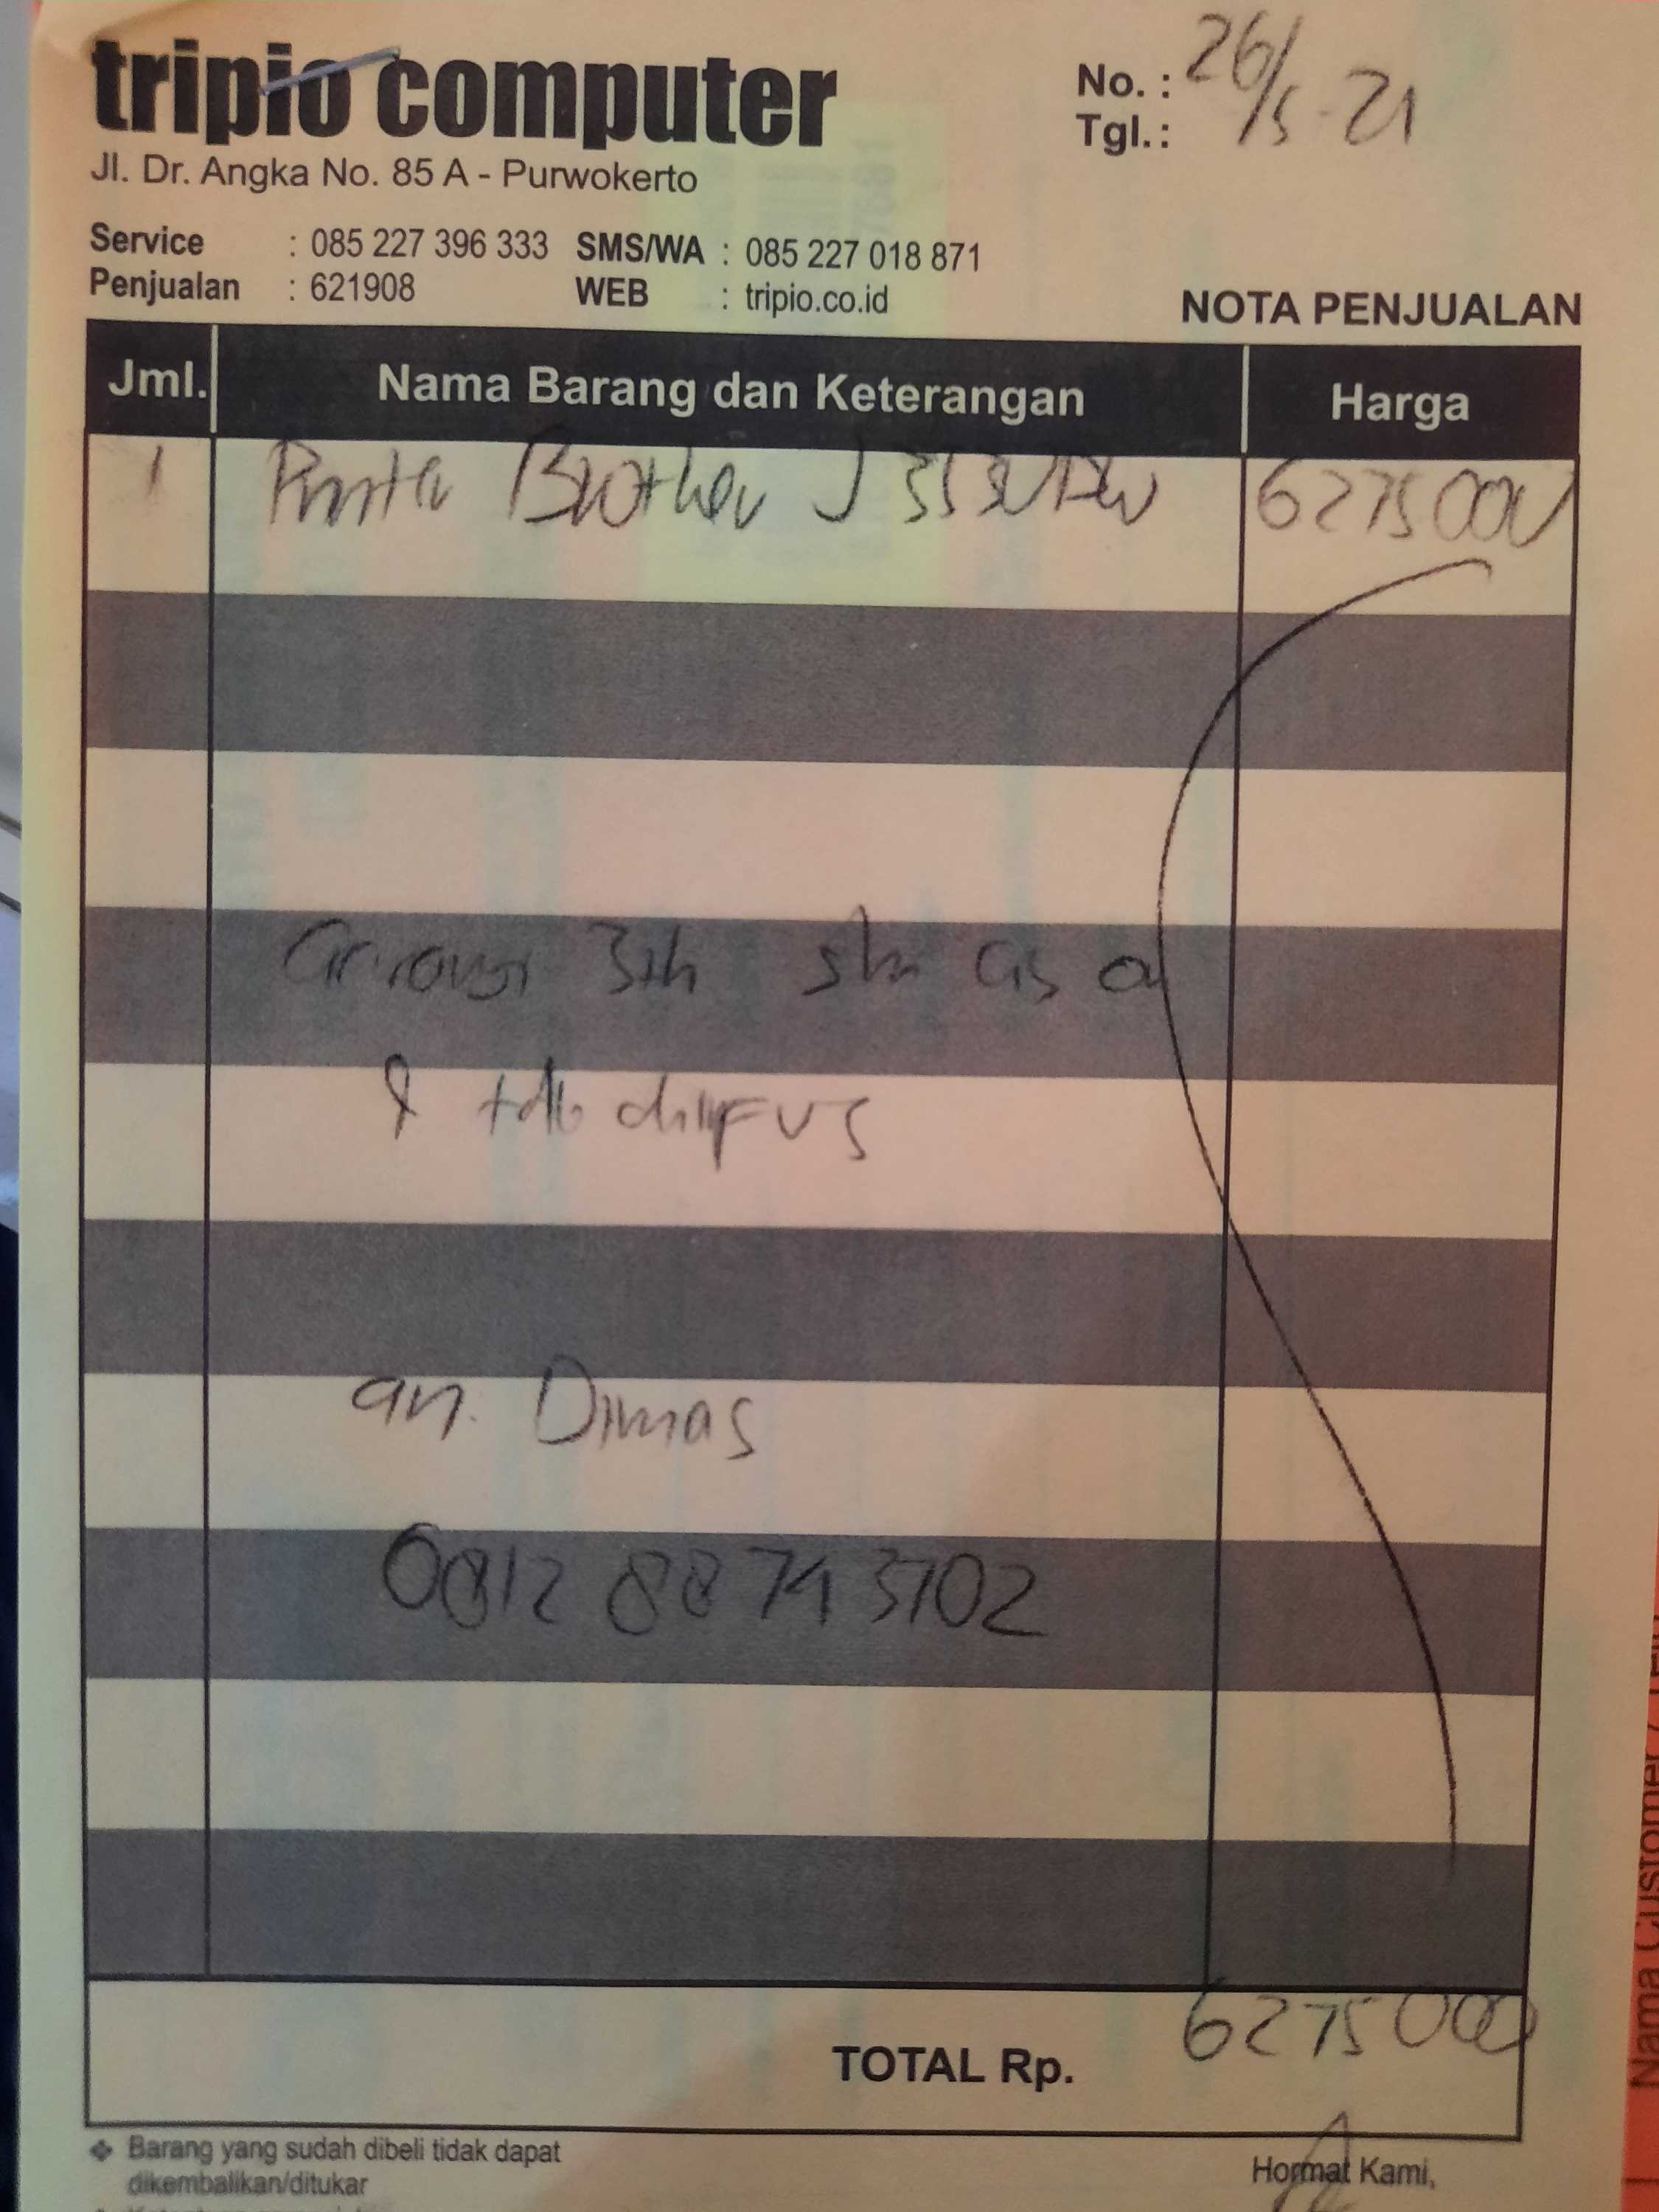 tripio computer
Jl. Dr. Angka No. 85 A - Purwokerto
No. : 26/5-21
Tgl. :
Service : 085 227 396 333 SMS/WA : 085 227 018 871
Penjualan : 621908 WEB : tripio.co.id
NOTA PENJUALAN
Jml. Nama Barang dan Keterangan Harga
1 Printer Brother J 6275000
3th
&
an. Dimas
0812 88 74 3702
TOTAL Rp. 6275000
Barang yang sudah dibeli tidak dapat
dikembalikan/ditukar
Hormat Kami,
Nama Customer /